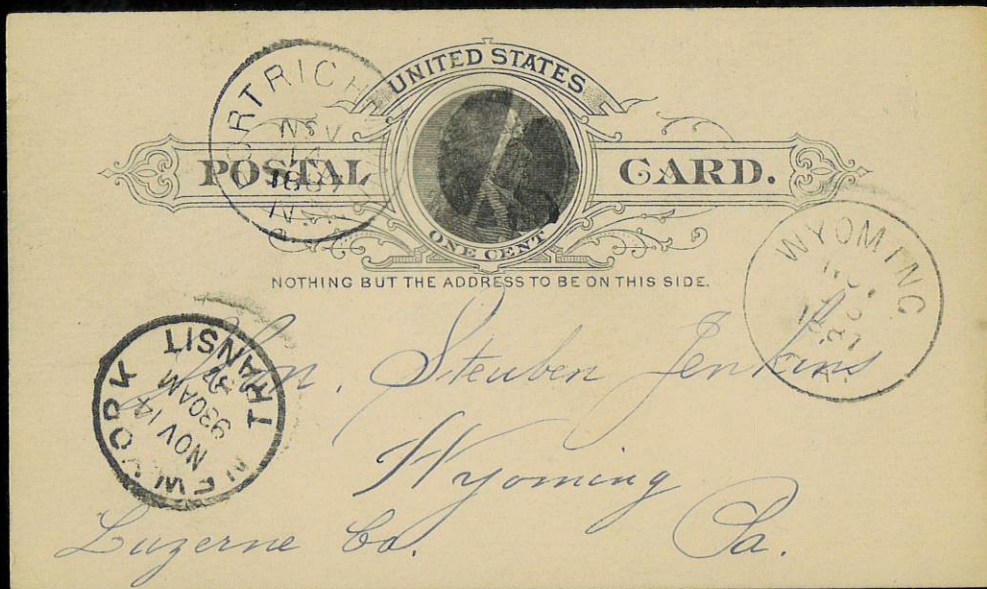 UNITED STATES
POSTAL CARD.
ONE CENT
NOTHING BUT THE ADDRESS TO BE ON THIS SIDE.
NOV
14
1887
N.Y.
WYOMING
NEW YORK
NOV 14
930AM
87
TRANSIT
Steuben Jenkins
Wyoming
Luzerne Co. Pa.